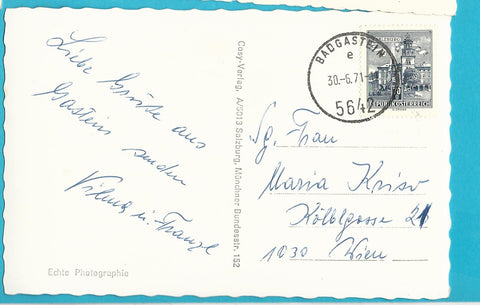 Liebe Grüße aus
Gastein senden
Vilma u. Franzl
Echte Photographie
Cosy-Verlag, A/5013 Salzburg, Münchner Bundesstr. 152
BADGASTEIN
e
30.-6.71-
5642
REPUBLIK ÖSTERREICH
Sg. Frau
Maria Kriso
Kölblgasse 21
1030 Wien